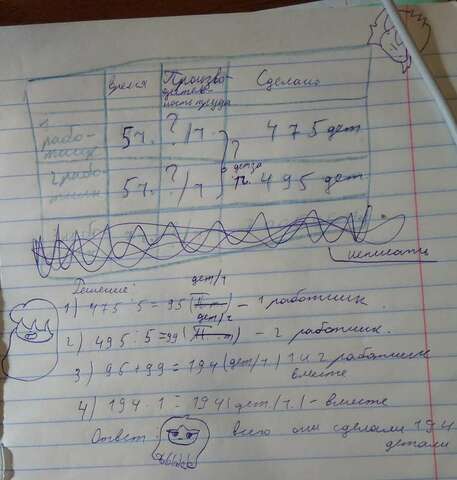 время Произво- Сделано
дитель-
ность труда
1 рабо-
тник 5ч. ?/ч ? 475 дет
2 рабо-
тник 5ч. ?/ч 495 дет
не писать
Решение:
дет/ч
1) 475 : 5 = 95 ( ) – 1 работник.
дет/ч
2) 495 : 5 = 99 ( ) – 2 работник.
3) 95 + 99 = 194 (дет/ч.) 1 и 2 работник
вместе
4) 194 · 1 = 194 (дет/ч.) – вместе
Ответ: всего они сделали 194
детали